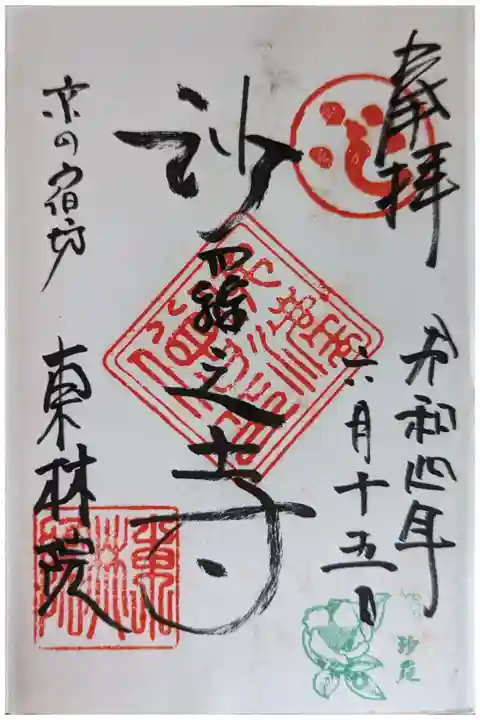 奉拝
令和四年
六月十五日
沙羅之寺
京の宿坊
東林院
沙羅